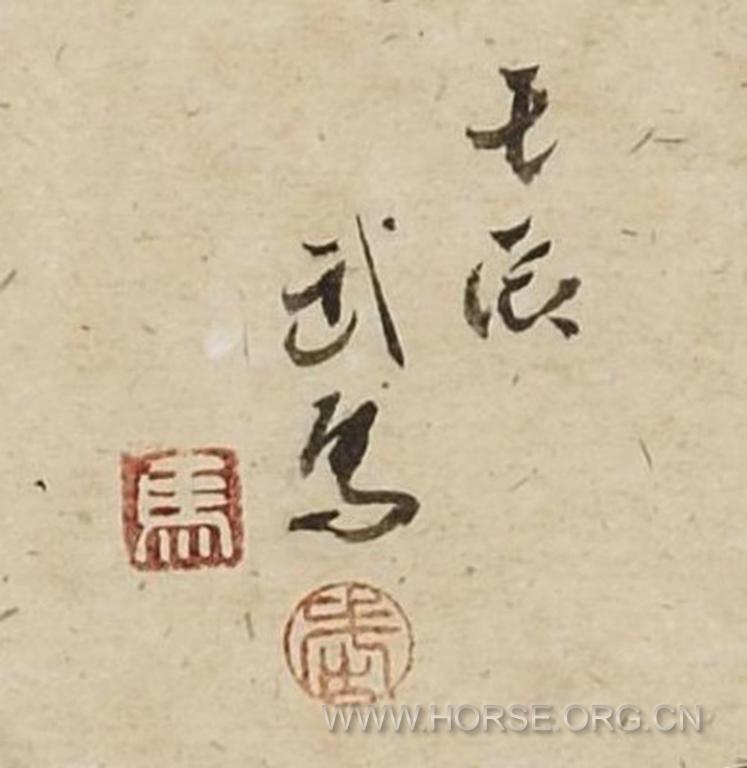 壬辰
武馬
馬
武
WWW.HORSE.ORG.CN